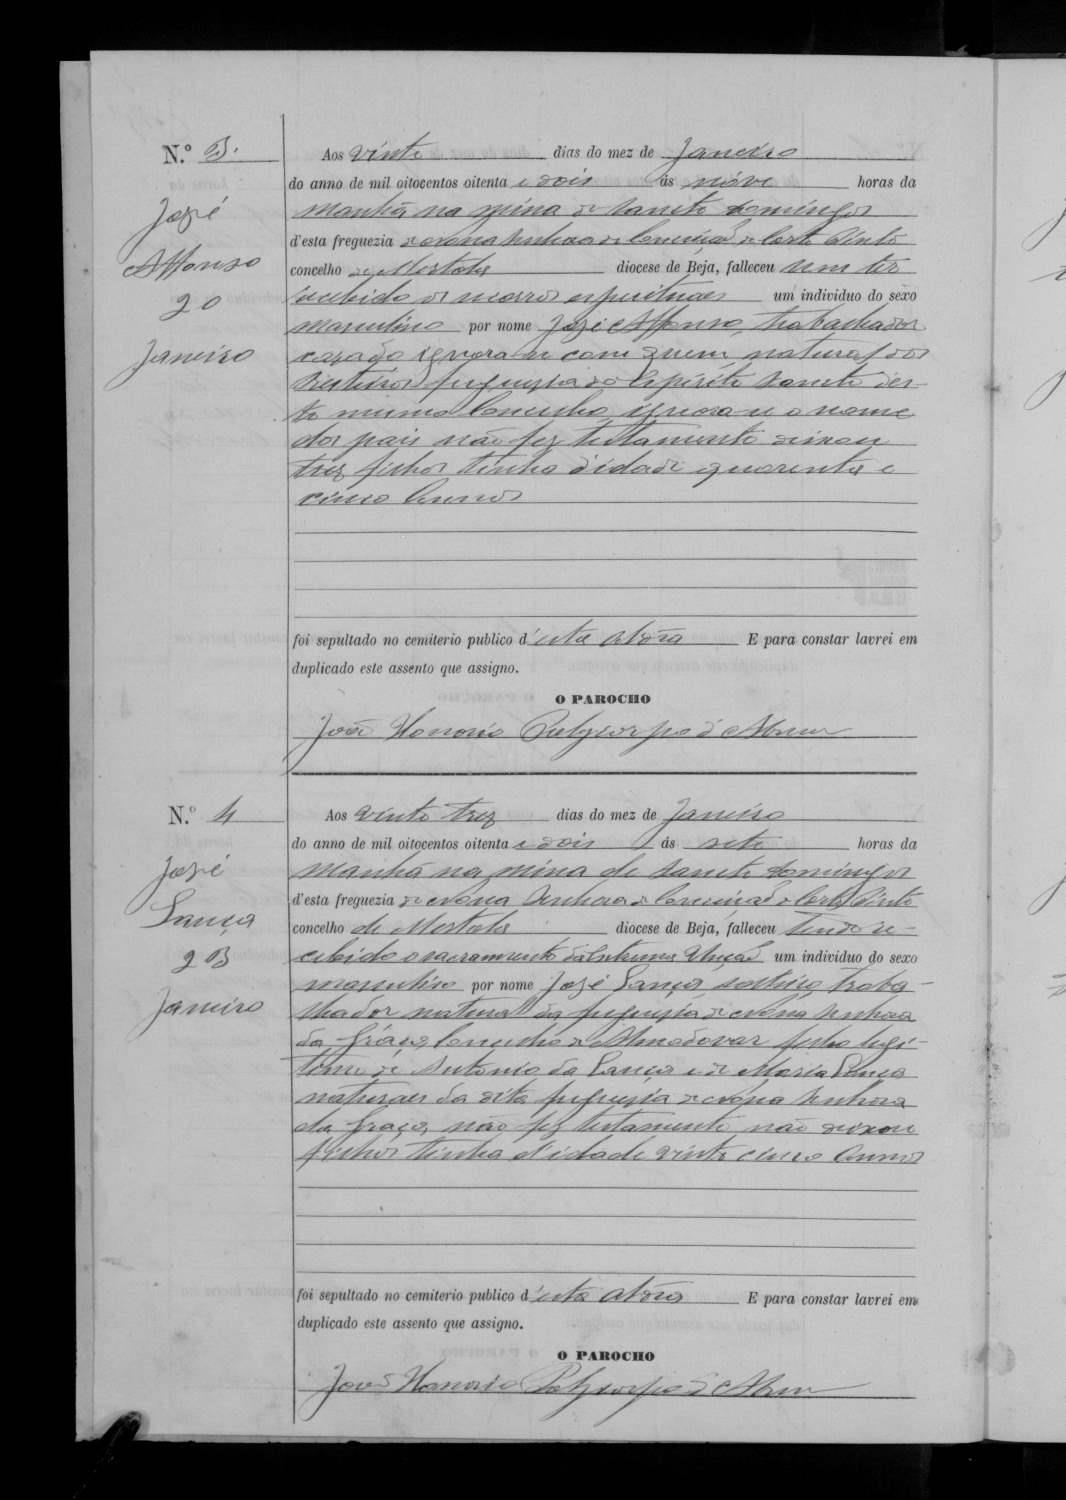 N.º 3.
José
Affonso
20
Janeiro
Aos vinte dias do mez de Janeiro
do anno de mil oitocentos oitenta e dois ás nóve horas da
manhã na mina de Sancto Domingos
d'esta freguezia de Nossa Senhora da Conceiçaõ de Corte Pinto
concelho de Mertola diocese de Beja, falleceu sem ter
recebido os socorros espirituaes um individuo do sexo
masculino por nome José Affonso, trabachador
casado ignora se com quem, natural dos
freguezia do Espirito Sancto des-
te mesmo Concelho, ignora-se o nome
dos pais não fez testamento deixou
trez filhos tinha d'idade quarenta e
cinco annos
foi sepultado no cemiterio publico d'esta aldêa E para constar lavrei em
duplicado este assento que assigno.
O PAROCHO
João Honorio d'Abreu
N.º 4
José
Lança
23
Janeiro
Aos vinte trez dias do mez de Janeiro
do anno de mil oitocentos oitenta e dois ás sete horas da
manhã na mina de Sancto Domingos
d'esta freguezia de Nossa Senhora da Conceiçaõ de Corte Pinto
concelho de Mertola diocese de Beja, falleceu tendo re-
cebido o sacramento da Extrema Unçaõ um individuo do sexo
masculino por nome José Lança solteiro, traba-
lhador natural da freguezia de Nossa Senhora
da Graça, Concelho de Almodovar filho legi-
timo de Antonio da Lança e de Maria Lança
naturaes da dita freguezia de Nossa Senhora
da Graça, não fez testamento não deixou
filhos tinha d'idade vinte cinco annos
foi sepultado no cemiterio publico d'esta aldêa E para constar lavrei em
duplicado este assento que assigno.
O PAROCHO
João Honorio d'Abreu